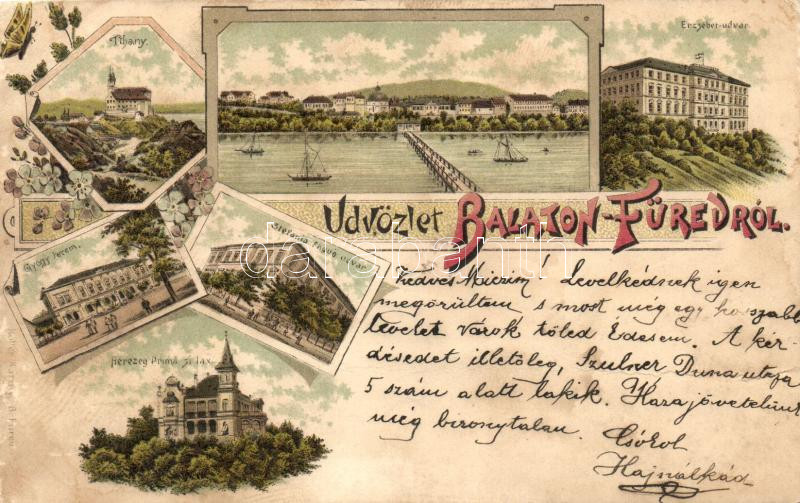 Tihany.
Erzsébet-udvar
Üdvözlet BALATON-FÜREDRŐL.
Stefánia főhg. udvar
Gyógyterem.
Herczeg Primá
darabanth
Kedves Miczim! Levelkédnek igen
megörültem s most még egy hosszabb
levelet várok tőled Édesem. A kér-
désedet illetőleg, Szulner Duna utcza
5 szám alatt lakik. Hazajövetelünk
még bizonytalan.
Csókol
Hajnálkád